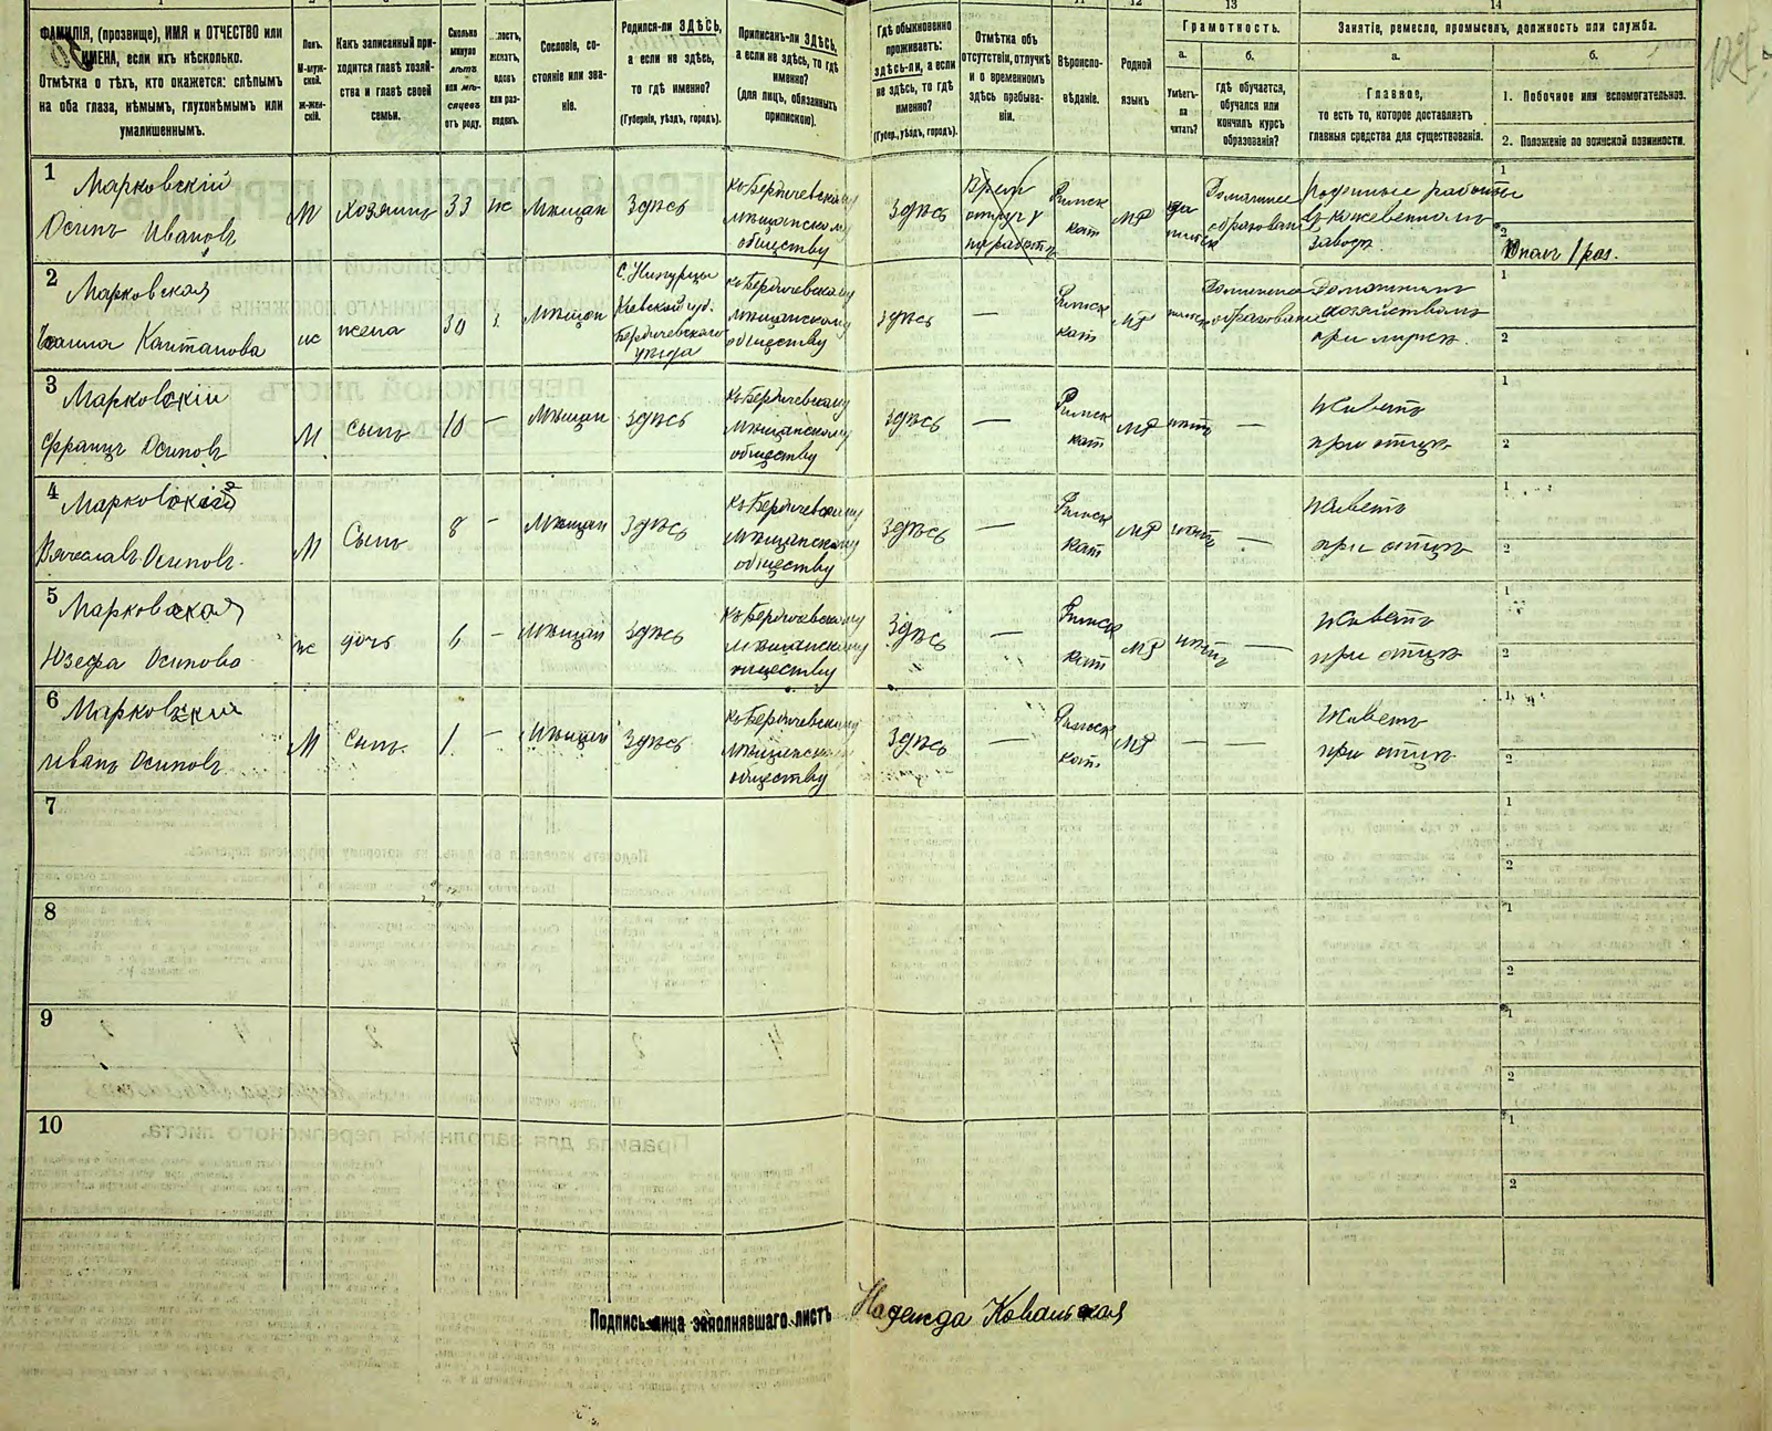 13
14
ФАМИЛІЯ, (прозвище), ИМЯ и ОТЧЕСТВО или
ИМЕНА, если ихъ нѣсколько.
Отмѣтка о тѣхъ, кто окажется: слѣпымъ
на оба глаза, нѣмымъ, глухонѣмымъ или
умалишеннымъ.
Полъ.
М-муж-
ской.
Ж-жен-
скій.
Какъ записанный при-
ходится главѣ хозяй-
ства и главѣ своей
семьи.
Сколько
минуло
лѣтъ
или мѣ-
сяцевъ
отъ роду.
лостъ,
женатъ,
вдовъ
или раз-
веденъ.
Сословіе, со-
стояніе или зва-
ніе.
Родился-ли ЗДѢСЬ,
а если не здѣсь,
то гдѣ именно?
(Губернія, уѣздъ, городъ).
Приписанъ-ли ЗДѢСЬ,
а если не здѣсь, то гдѣ
именно?
(для лицъ, обязанныхъ
припискою).
Гдѣ обыкновенно
проживаетъ:
здѣсь-ли, а если
не здѣсь, то гдѣ
именно?
(Губер., уѣздъ, городъ).
Отмѣтка объ
отсутствіи, отлучкѣ
и о временномъ
здѣсь пребыва-
ніи.
Вѣроиспо-
вѣданіе.
Родной
языкъ
Грамотность.
а.
Умѣетъ-
ли
читать?
б.
гдѣ обучается,
обучался или
кончилъ курсъ
образованія?
Занятіе, ремесло, промыселъ, должность или служба.
а.
Главное,
то есть то, которое доставляетъ
главныя средства для существованія.
б.
1. Побочное или вспомогательное.
2. Положеніе по воинской повинности.
1
Марковскій
Осипъ Ивановъ
М
хозяинъ
33
ж
Мѣщан
Здѣсь
къ Бердичевскому
мѣщанскому
обществу
Здѣсь
Римск
кат
да
Домашнее
Поденные работы
въ кожевенномъ
заводѣ
1
2
2
Марковская
жена
30
Мѣщан
Кіевской губ.
Бердичевскаго
уѣзда
къ Бердичевскому
мѣщанскому
обществу
здѣсь
—
Римск
кат
1
2
3
Марковскій
Францъ Осиповъ
М
сынъ
10
—
Мѣщан
здѣсь
къ Бердичевскому
мѣщанскому
обществу
здѣсь
—
Римск
кат
нѣтъ
—
Живетъ
при отцѣ
1
2
4
Вячеславъ Осиповъ
М
Сынъ
8
—
Мѣщан
Здѣсь
къ Бердичевскому
мѣщанскому
обществу
здѣсь
—
Римск
кат
нѣтъ
—
Живетъ
при отцѣ
1
2
5
Марковская
Юзефа Осипова
ж
дочь
6
—
Мѣщан
здѣсь
къ Бердичевскому
мѣщанскому
обществу
Здѣсь
—
Римск
кат
нѣтъ
—
Живетъ
при отцѣ
1
2
6
Марковскій
Иванъ Осиповъ
М
Сынъ
1
—
Мѣщан
здѣсь
къ Бердичевскому
мѣщанскому
обществу
Здѣсь
—
Римск
кат.
—
—
Живетъ
при отцѣ
1
2
7
1
2
8
1
2
9
1
2
10
1
2
Подпись лица заполнявшаго листъ Надежда Ковальская